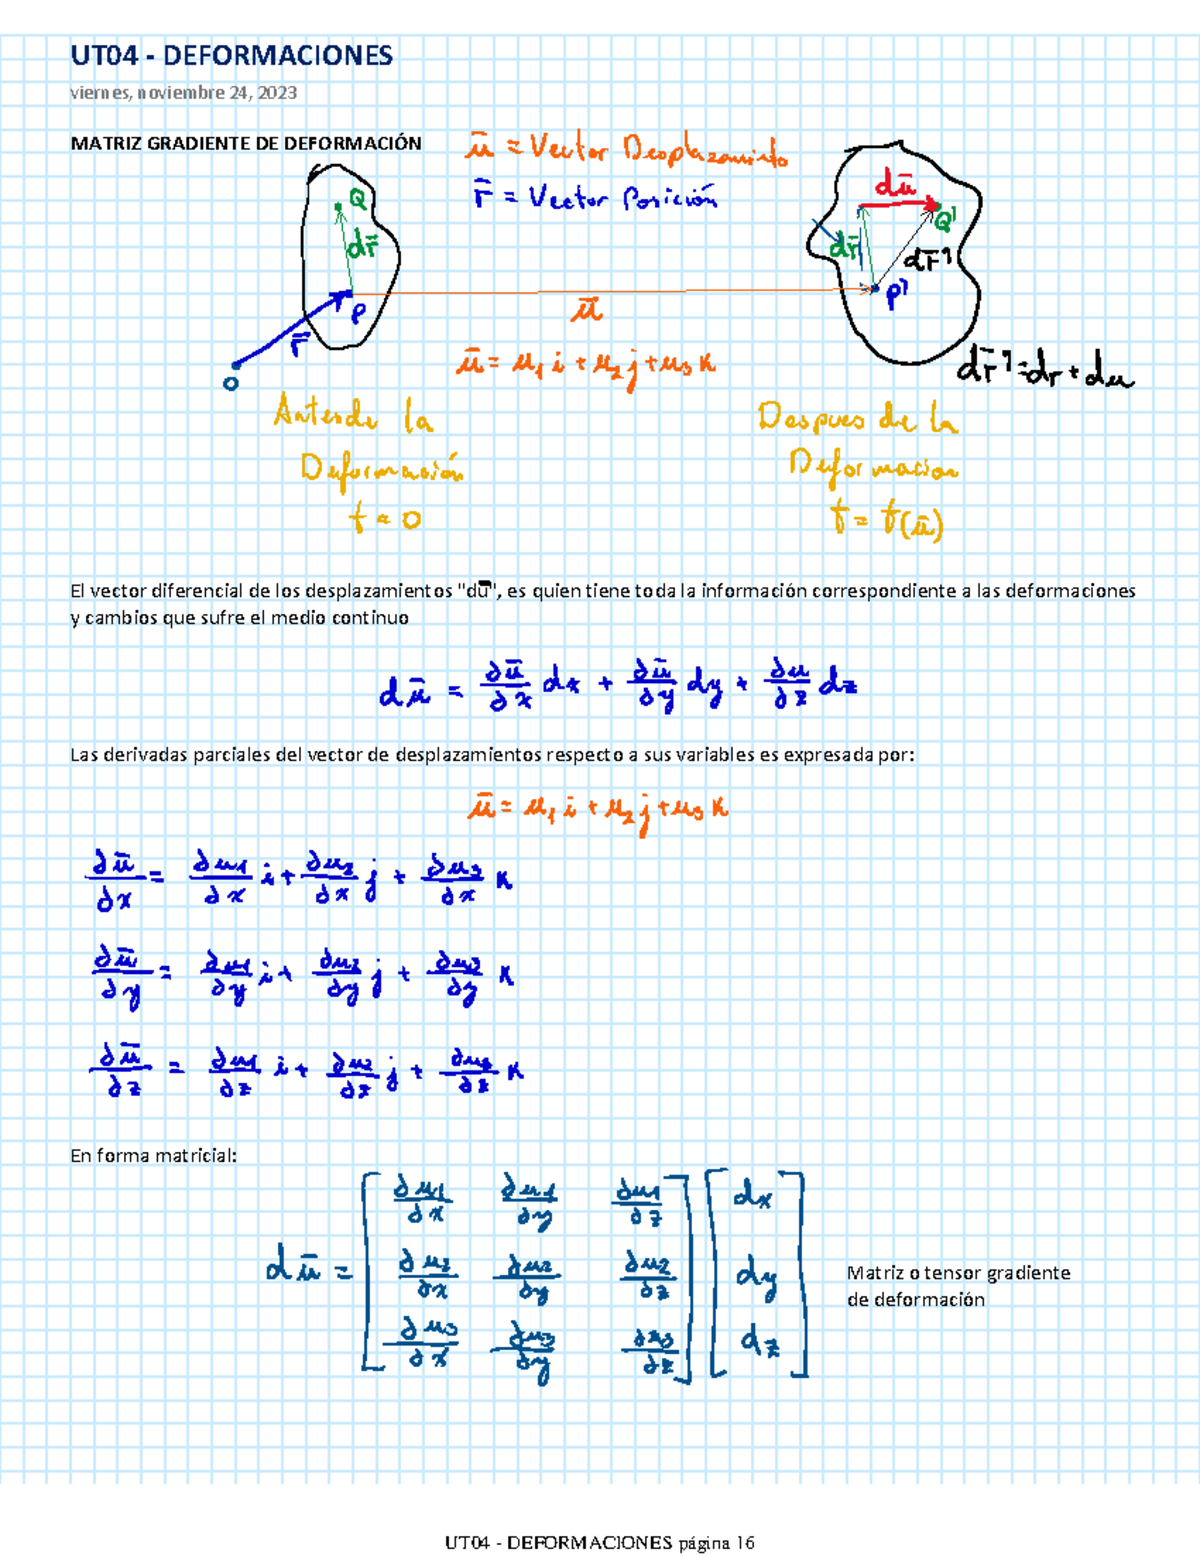 UT04 - DEFORMACIONES
viernes, noviembre 24, 2023
MATRIZ GRADIENTE DE DEFORMACIÓN
ū = Vector Desplazamiento
r̄ = Vector Posición
Q
dr̄
P
r̄
O
ū
dū
Q'
dr̄
dr̄'
P'
ū = u₁ i + u₂ j + u₃ k
dr̄' = dr + du
Antes de la
Deformación
t = 0
Despues de la
Deformacion
t = t(ū)
El vector diferencial de los desplazamientos "dū", es quien tiene toda la información correspondiente a las deformaciones
y cambios que sufre el medio continuo
dū = ∂ū/∂x dx + ∂ū/∂y dy + ∂u/∂z dz
Las derivadas parciales del vector de desplazamientos respecto a sus variables es expresada por:
ū = u₁ i + u₂ j + u₃ k
∂ū/∂x = ∂u1/∂x i + ∂u2/∂x j + ∂u3/∂x k
∂ū/∂y = ∂u1/∂y i + ∂u2/∂y j + ∂u3/∂y k
∂ū/∂z = ∂u1/∂z i + ∂u2/∂z j + ∂u3/∂z k
En forma matricial:
dū = [∂u1/∂x ∂u1/∂y ∂u1/∂z] [dx]
[∂u2/∂x ∂u2/∂y ∂u2/∂z] [dy]
[∂u3/∂x ∂u3/∂y ∂u3/∂z] [dz]
Matriz o tensor gradiente
de deformación
UT04 - DEFORMACIONES página 16